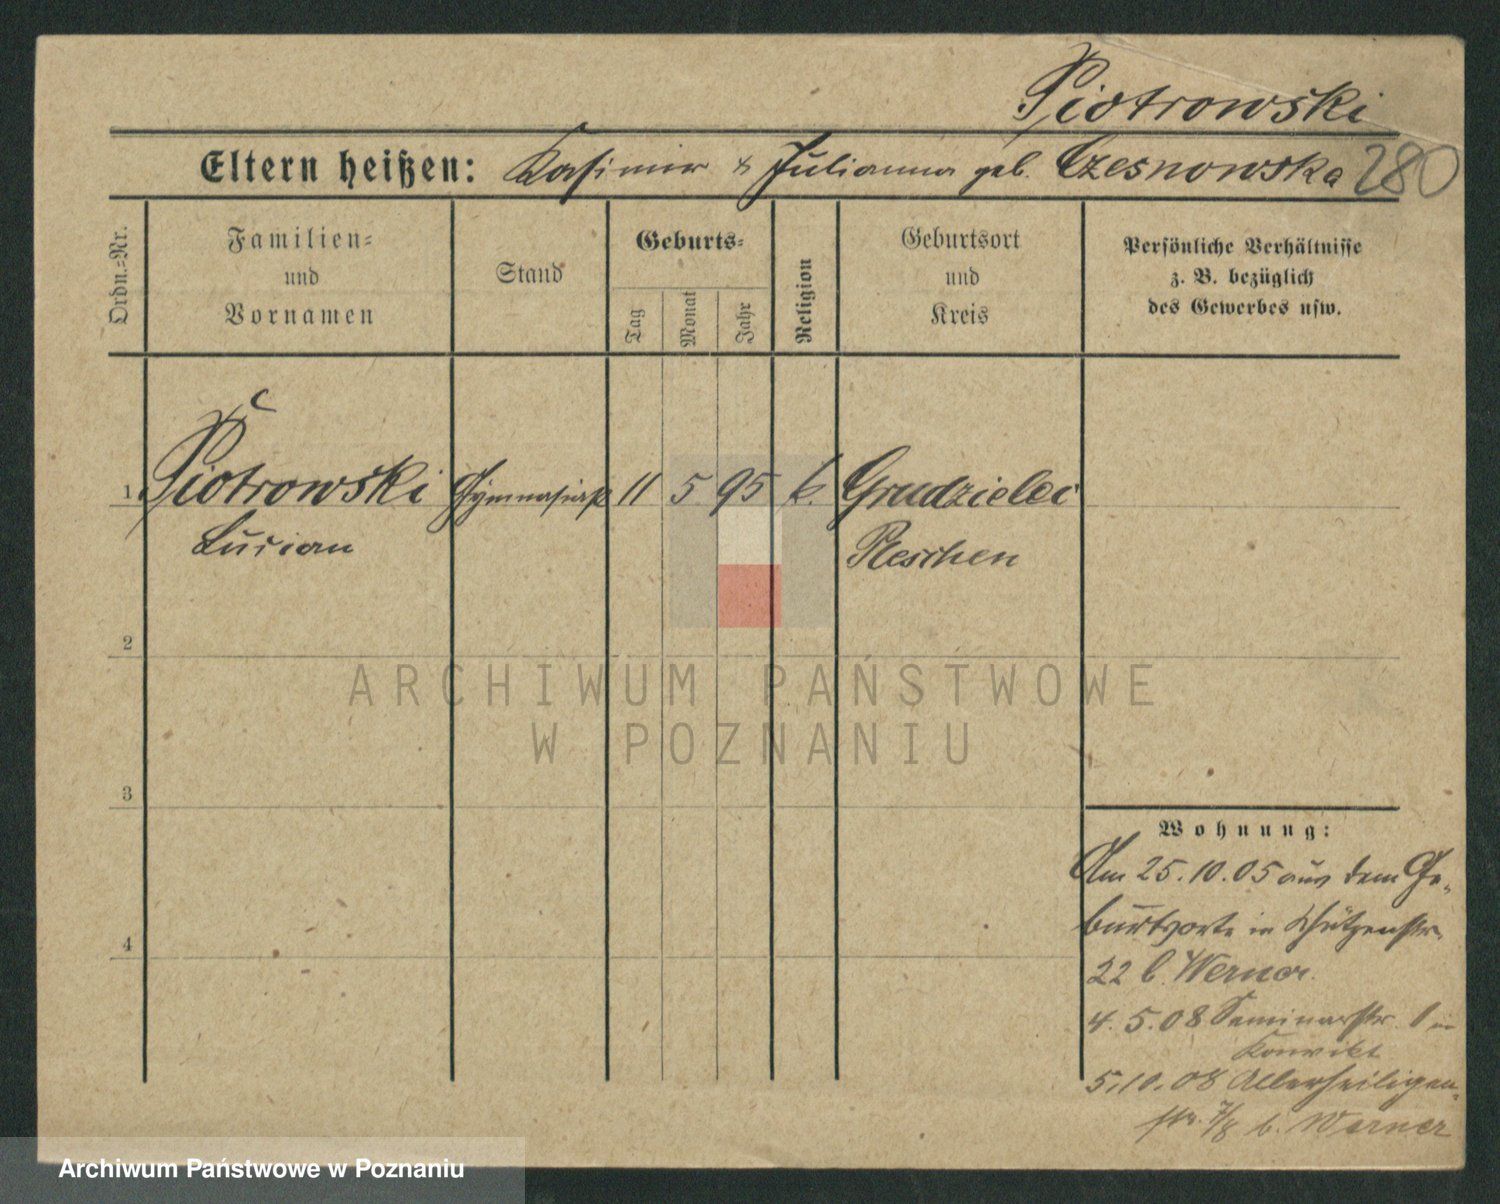 Piotrowski
Eltern heißen: Kasimir & Julianna geb. Czesnowska 280
Ordn.-Nr.
Familien- und Vornamen
Stand
Geburts-
Tag
Monat
Jahr
Religion
Geburtsort und Kreis
Persönliche Verhältnisse
z. B. bezüglich
des Gewerbes usw.
1 Piotrowski Gymnasiast 11 5 95 k. Grudzielec
Lucian Pleschen
2
ARCHIWUM PAŃSTWOWE
W POZNANIU
3
Wohnung:
Am 25.10.05 aus dem Ge-
burtsorte in Schützenstr.
22 b. Werner.
4
4.5.08 Seminarstr. 1 im
Konvikt
5.10.08 Allerheiligen-
str. 7/8 b. Werner
Archiwum Państwowe w Poznaniu